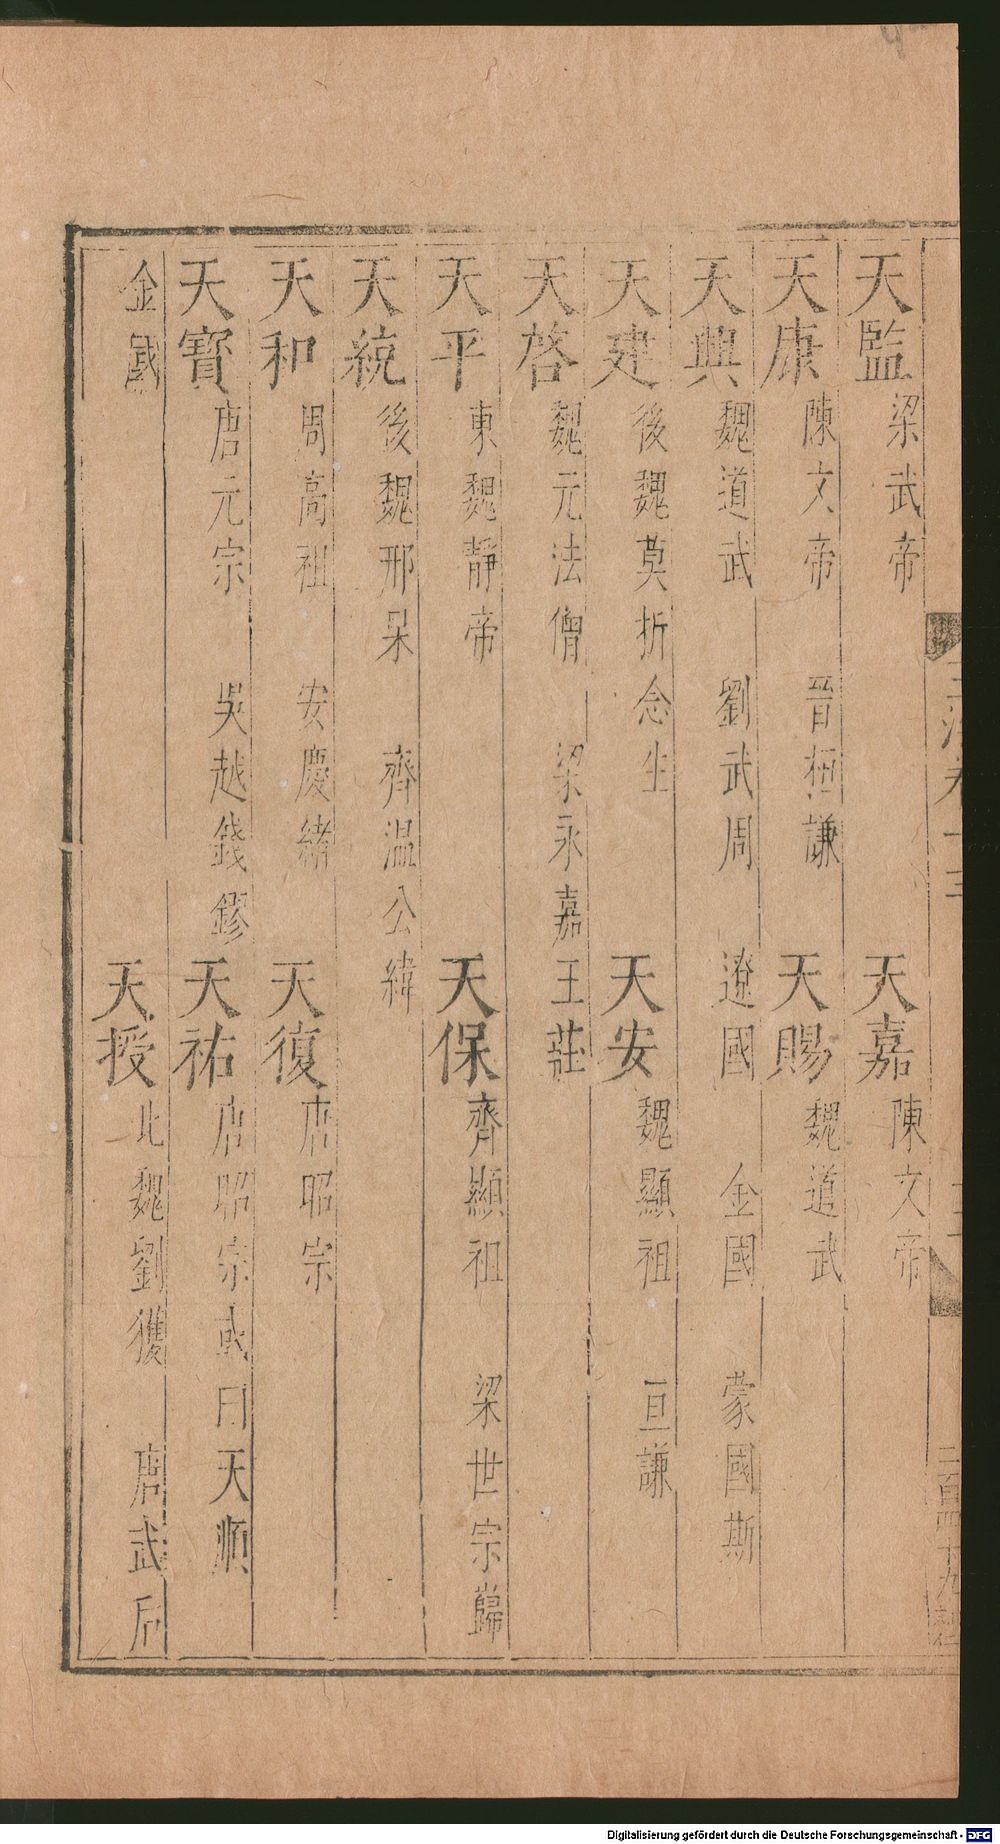 天監 梁武帝 天嘉 陳文帝
天康 陳文帝 晉桓謙 天賜 魏道武
天興 魏道武 劉武周 遼國 金國 蒙國斯
天建 後魏莫折念生 天安 魏顯祖 亘謙
天啓 魏元法僧 梁永嘉王莊
天平 東魏靜帝 天保 齊顯祖 梁世宗巋
天統 後魏邢杲 齊温公緯
天和 周高祖 安慶緒 天復 唐昭宗
天寳 唐元宗 吳越錢鏐 天祐 唐昭宗或曰天順
金國 天授 北魏劉獲 唐武后
Digitalisierung gefördert durch die Deutsche Forschungsgemeinschaft - DFG